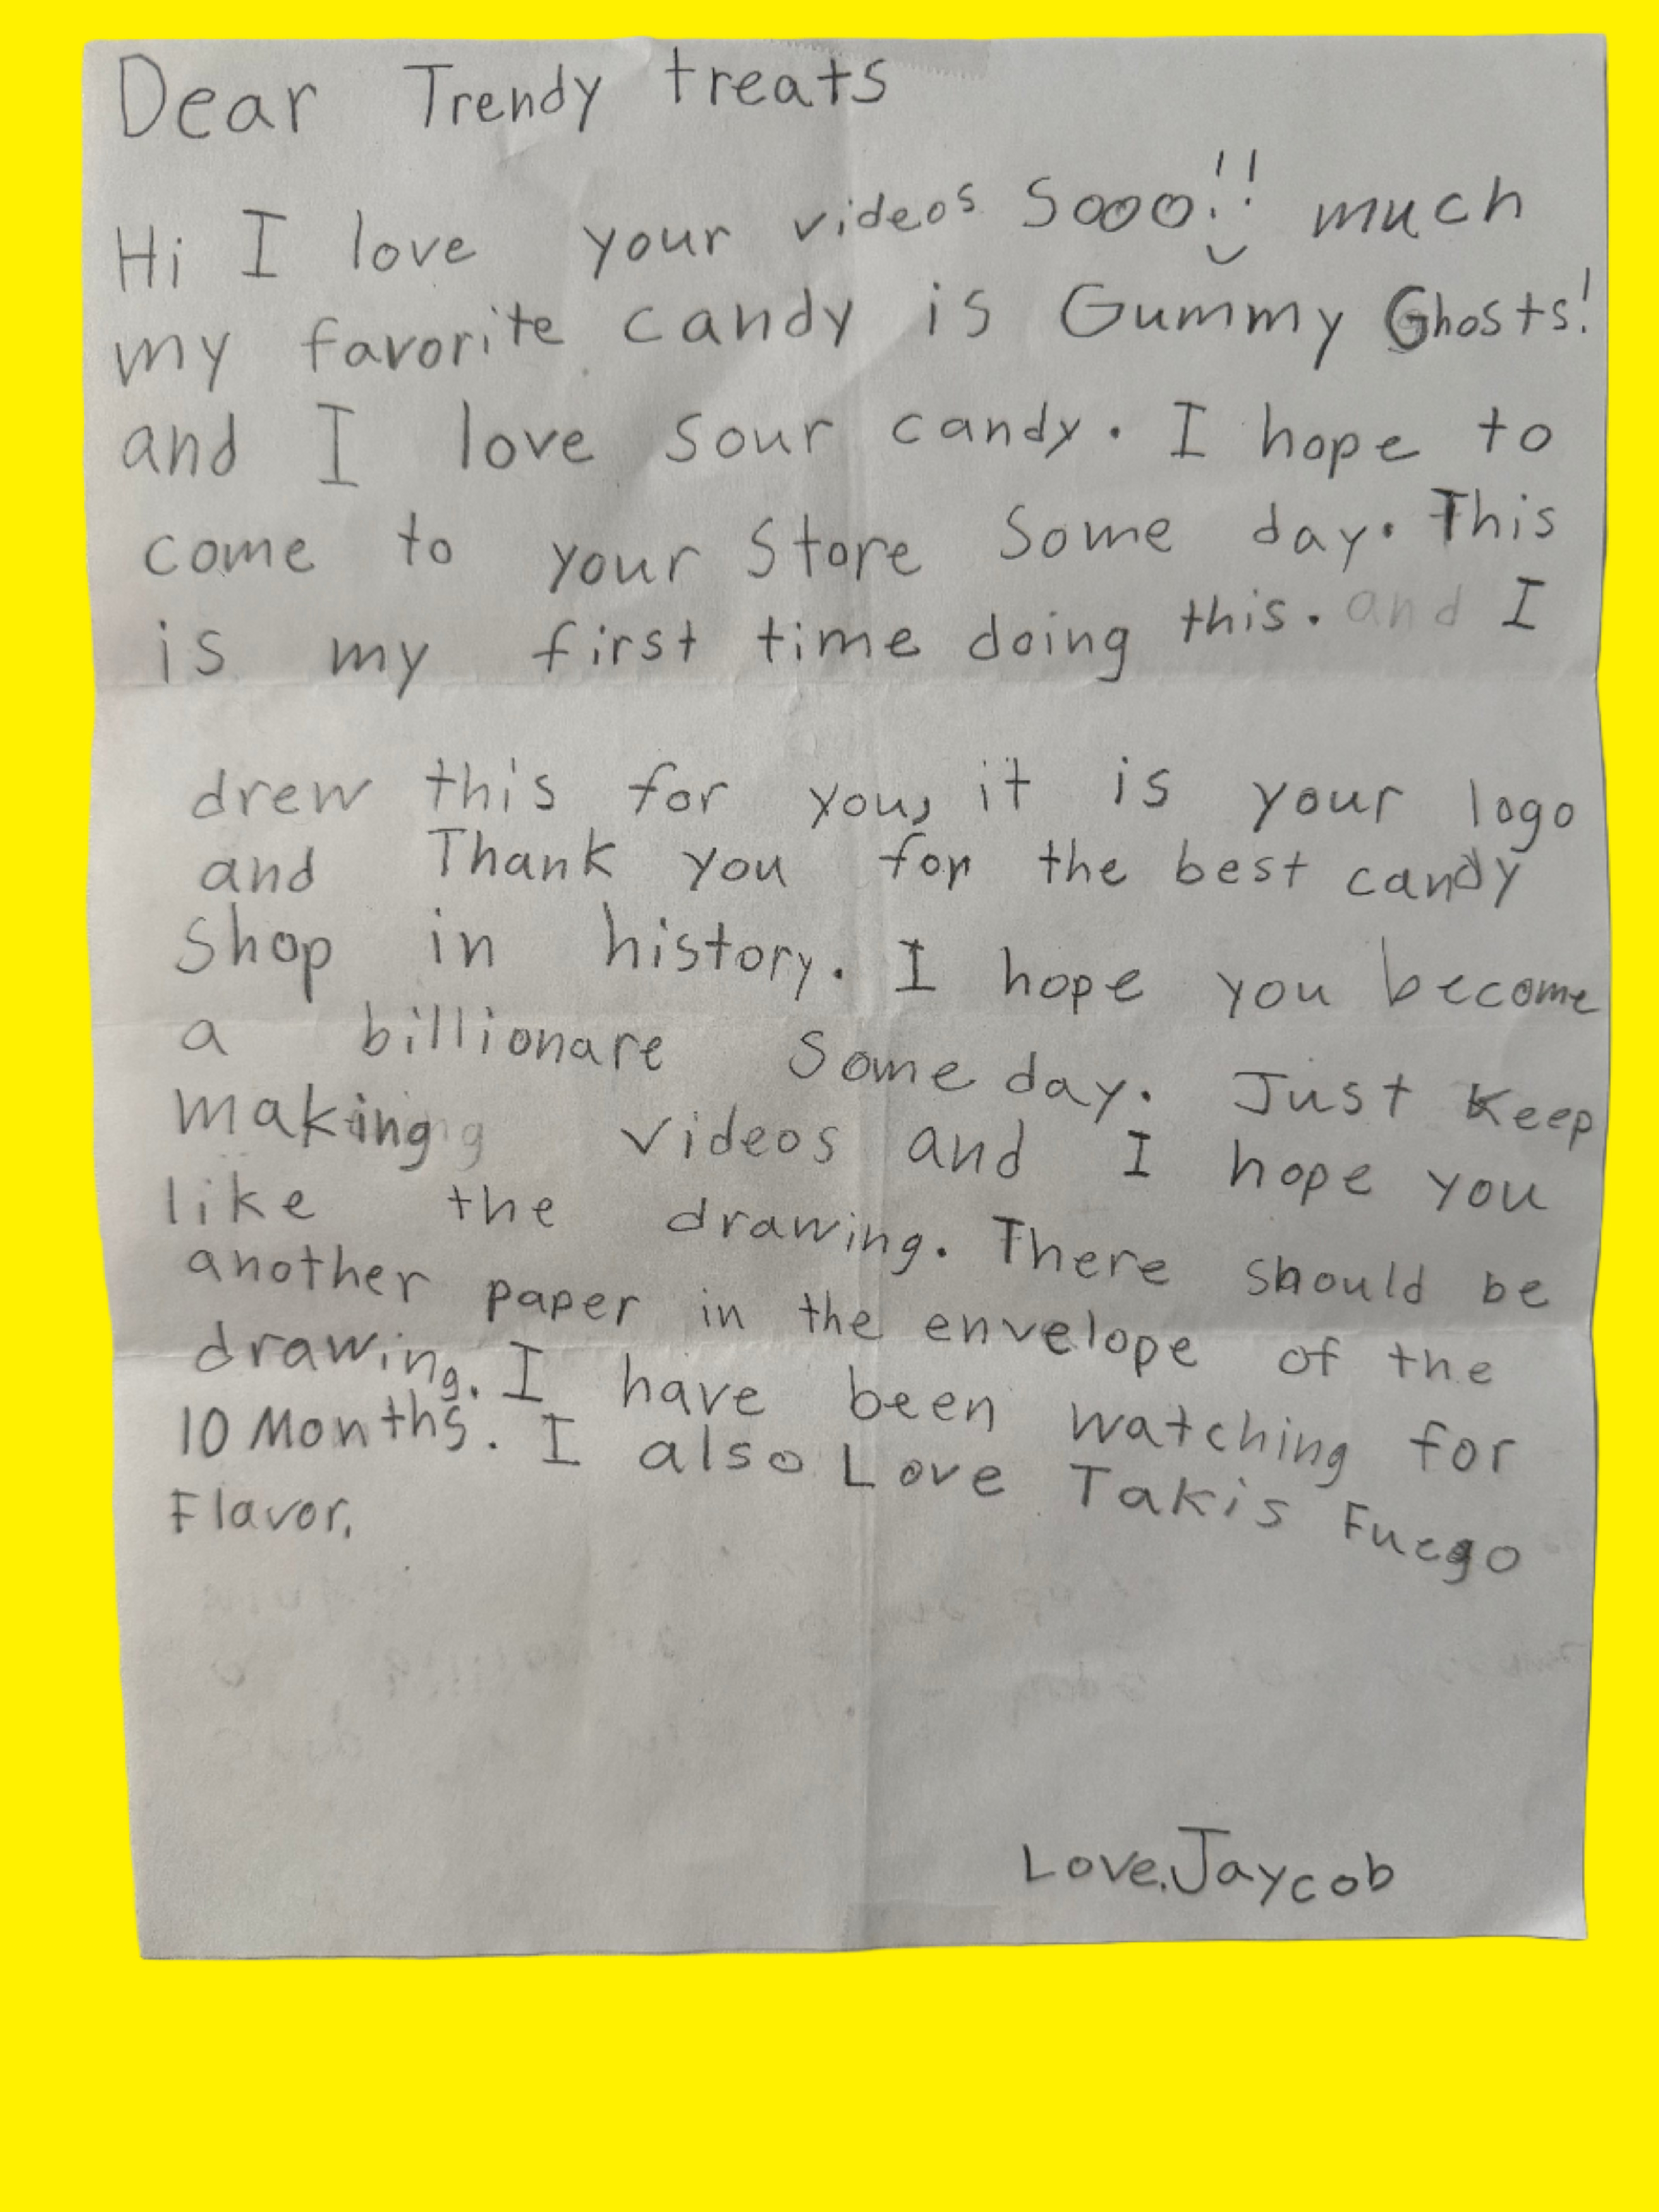 Dear Trendy treats
Hi I love your videos Sooo!! much
my favorite candy is Gummy Ghosts!
and I love sour candy. I hope to
come to your Store Some day. This
is my first time doing this. and I
drew this for you, it is your logo
and Thank you for the best candy
Shop in history. I hope you become
a billionare Some day. Just Keep
making videos and I hope you
like the drawing. There should be
another paper in the envelope of the
drawing. I have been watching for
10 Months. I also Love Takis Fuego
Flavor.
Love, Jaycob